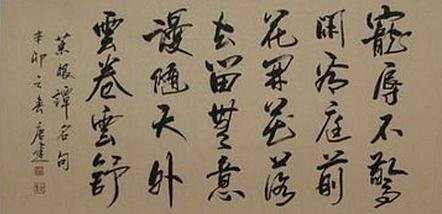 寵辱不驚
閒看庭前
花開花落
去留無意
漫隨天外
雲卷雲舒
菜根譚名句
辛卯之春